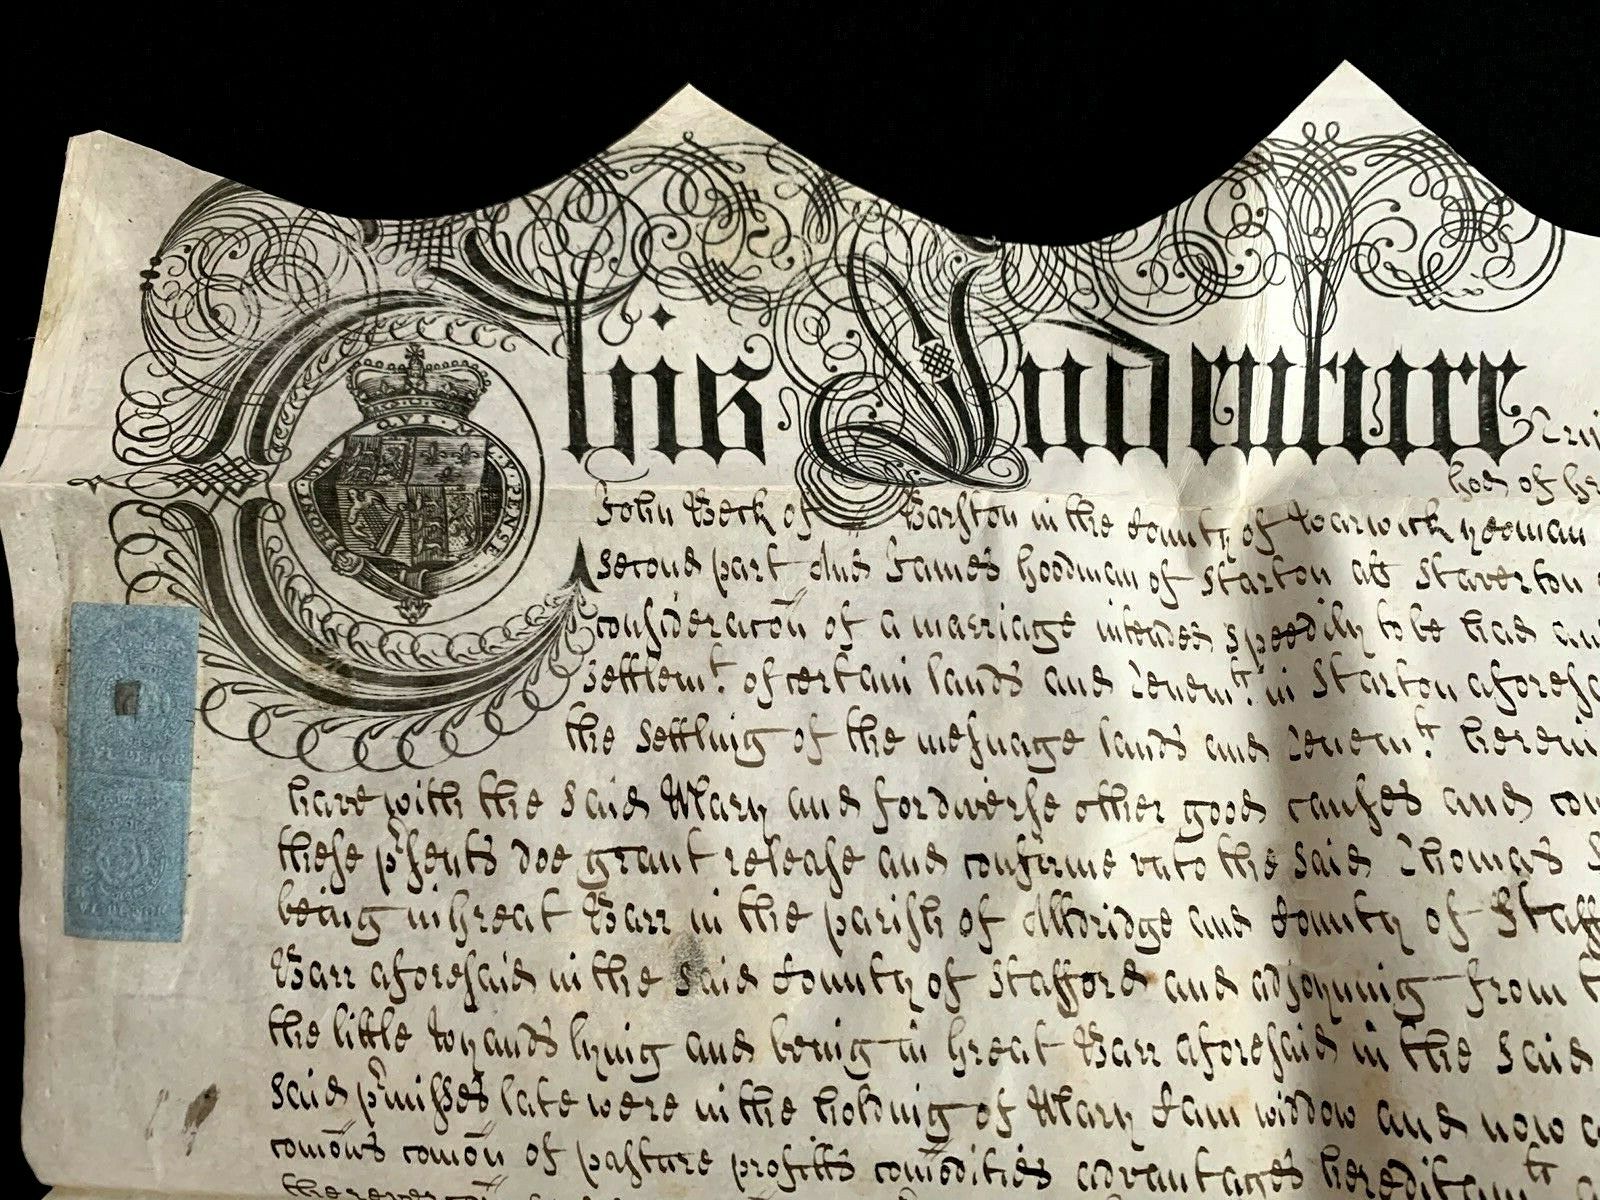 This Indenture Trip
John Beck of Barston in the County of Warwick yeoman
second part And James Goodman of Starton als Staverton
consideracon of a marriage intended speedily to be had and
settlemt. of certain lands and Tenemts. in Starton aforesd
the settling of the mesuage lands and Tenemts. herein
have with the said Mary and for diverse other good causes and con
these prsents doe grant release and confirme unto the said Thomas
being in Great Barr in the parish of Alldridge and County of Staff
Barr aforesaid in the said County of Stafford and adjoyning from
the little Wyands lying and being in Great Barr aforesaid in the said
said prmisses late were in the holding of Mary Cam widdow and now
comons comon of pasture profitts comodities advantages hereditamts
HONI SOIT QVI MAL Y PENSE